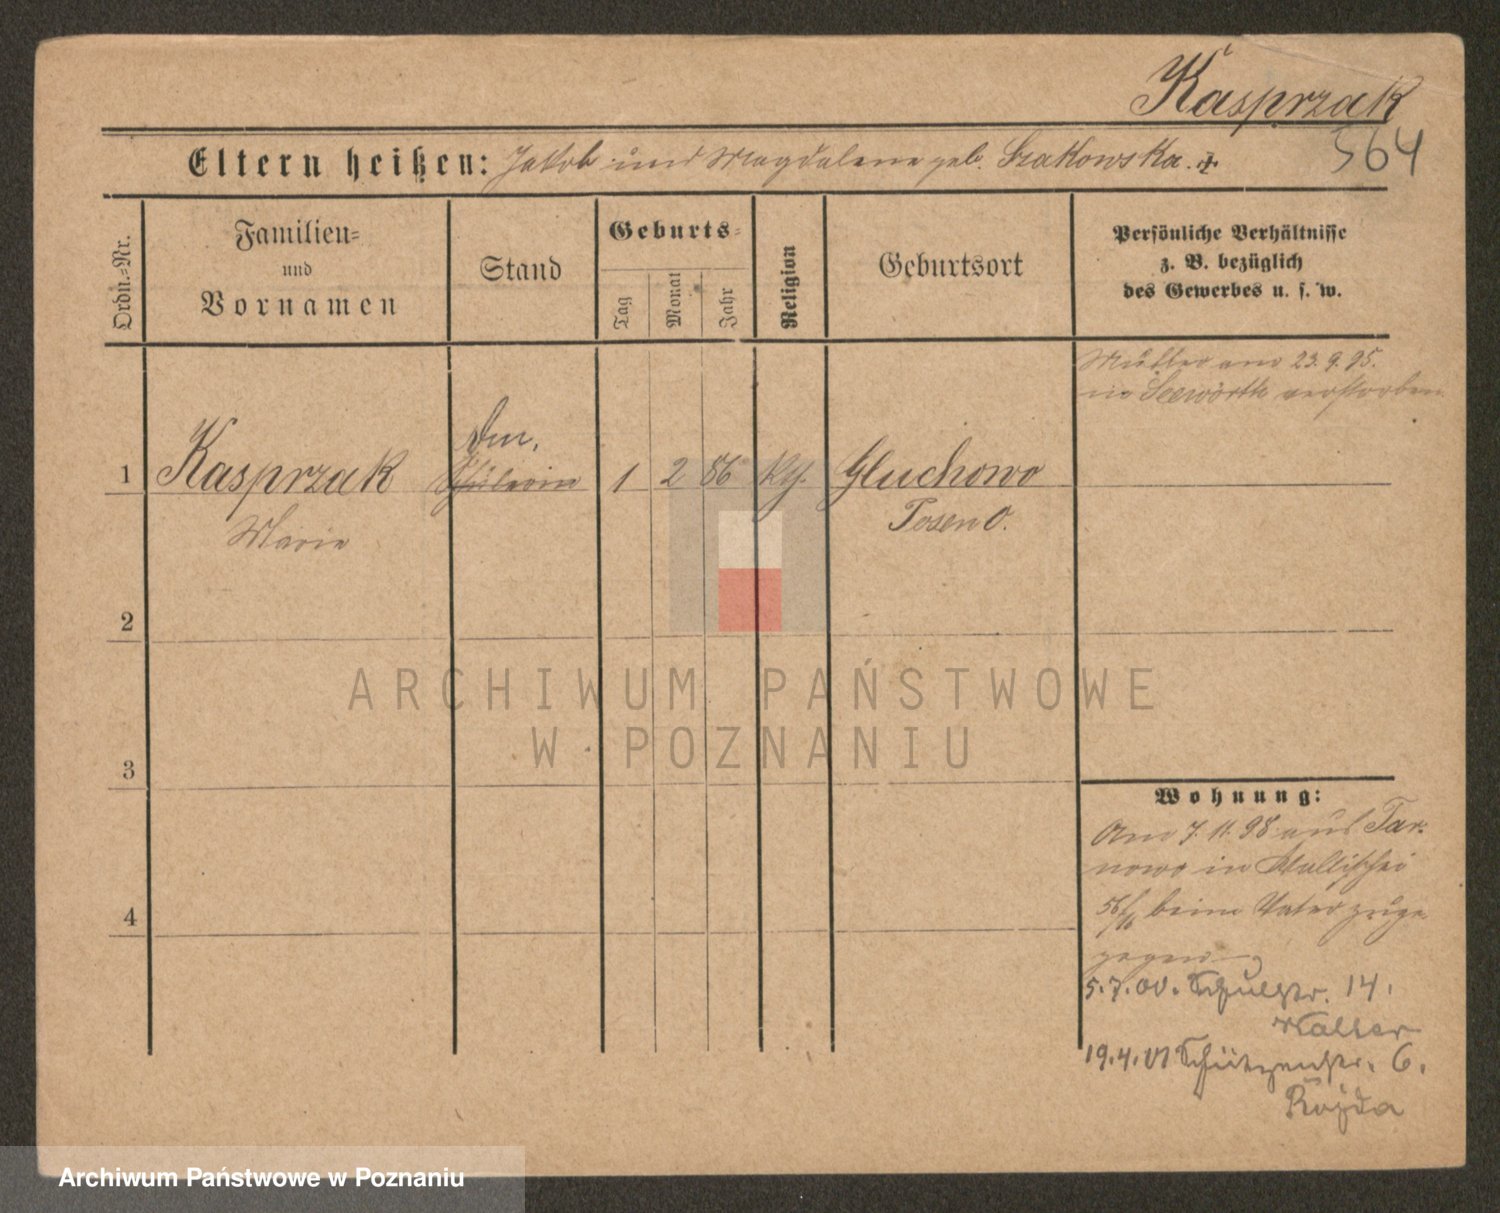 Kasprzak
564
Eltern heißen: Jakob und Magdalene geb. Szakowska. +
Ordn.=Nr.
Familien=
und
Vornamen
Stand
Geburts=
Tag
Monat
Jahr
Religion
Geburtsort
Persönliche Verhältnisse
z. B. bezüglich
des Gewerbes u. s. w.
Mutter am 23. 9. 95.
in Seewörth verstorben.
1
Kasprzak
Marie
Schülerin
1 2 86
Gluchowo
Posen O.
2
3
4
Wohnung:
Am 7. 11. 98 aus Tar-
nowo in Wallischei
beim Vater zuge-
zogen
5. 7. 00. Schulstr. 14.
Walter
19. 4. 01 Schützenstr. 6.
Rojda
ARCHIWUM PAŃSTWOWE
W POZNANIU
Archiwum Państwowe w Poznaniu